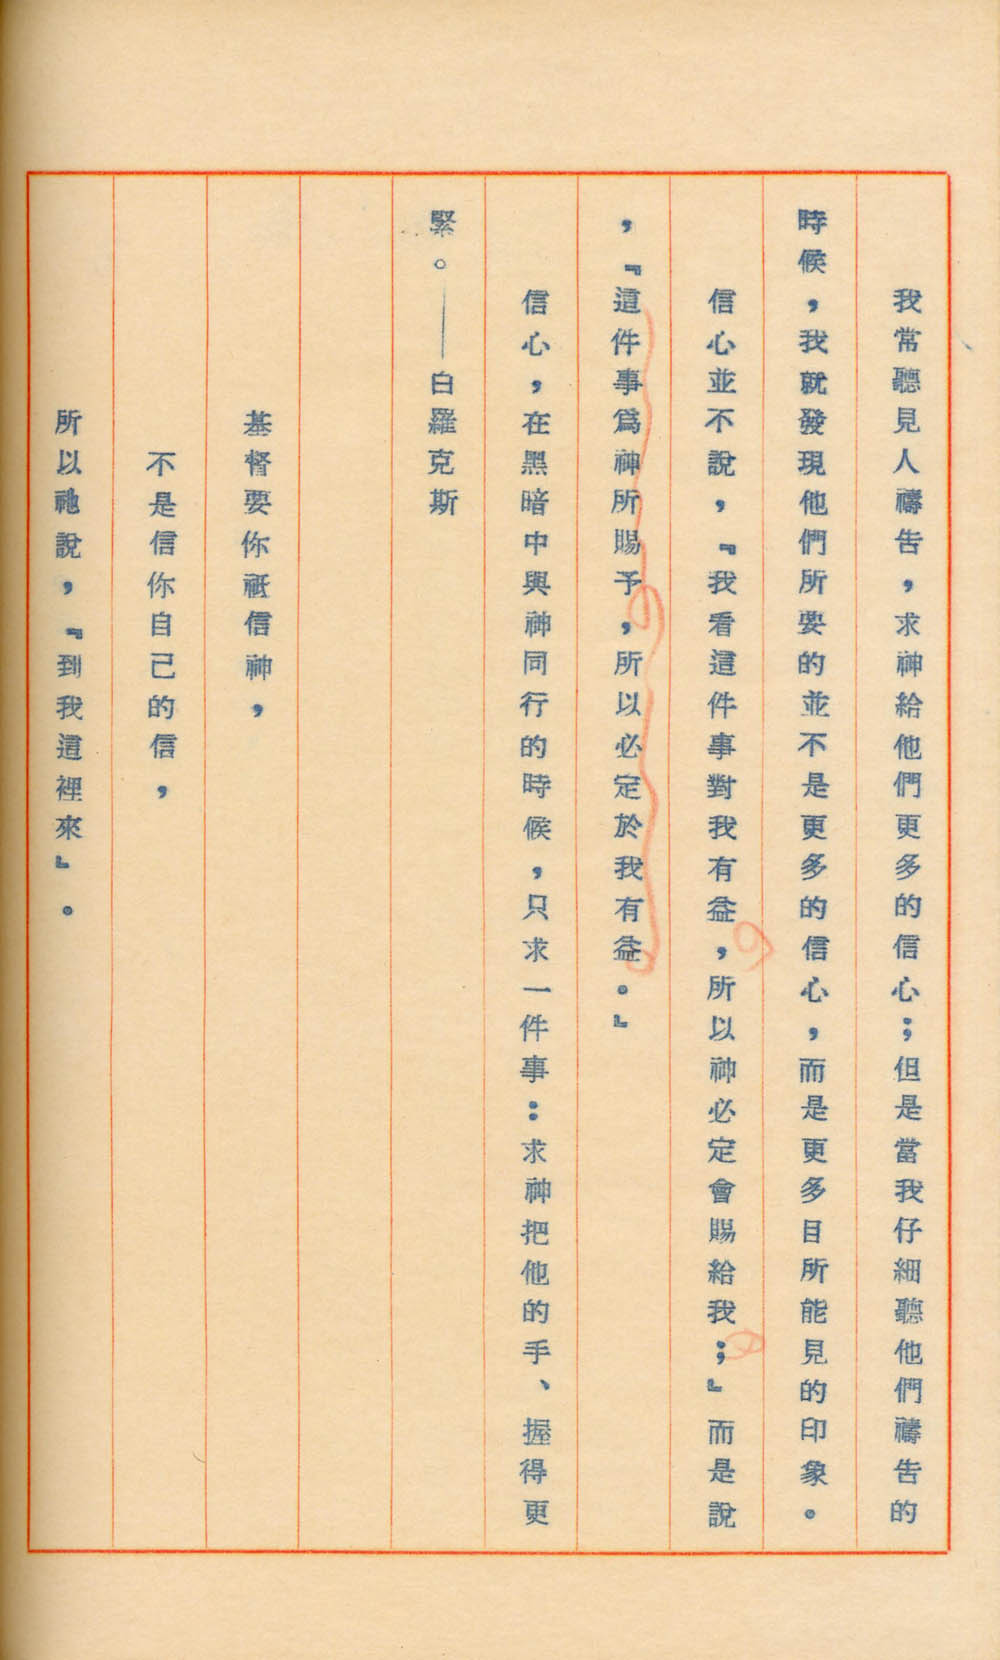 我常聽見人禱告，求神給他們更多的信心；但是當我仔細聽他們禱告的
時候，我就發現他們所要的並不是更多的信心，而是更多目所能見的印象。
信心並不說，『我看這件事對我有益，所以神必定會賜給我；』而是說
，『這件事爲神所賜予，所以必定於我有益。』
信心，在黑暗中與神同行的時候，只求一件事：求神把他的手、握得更
緊。——白羅克斯
基督要你祇信神，
不是信你自己的信，
所以祂說，『到我這裡來』。